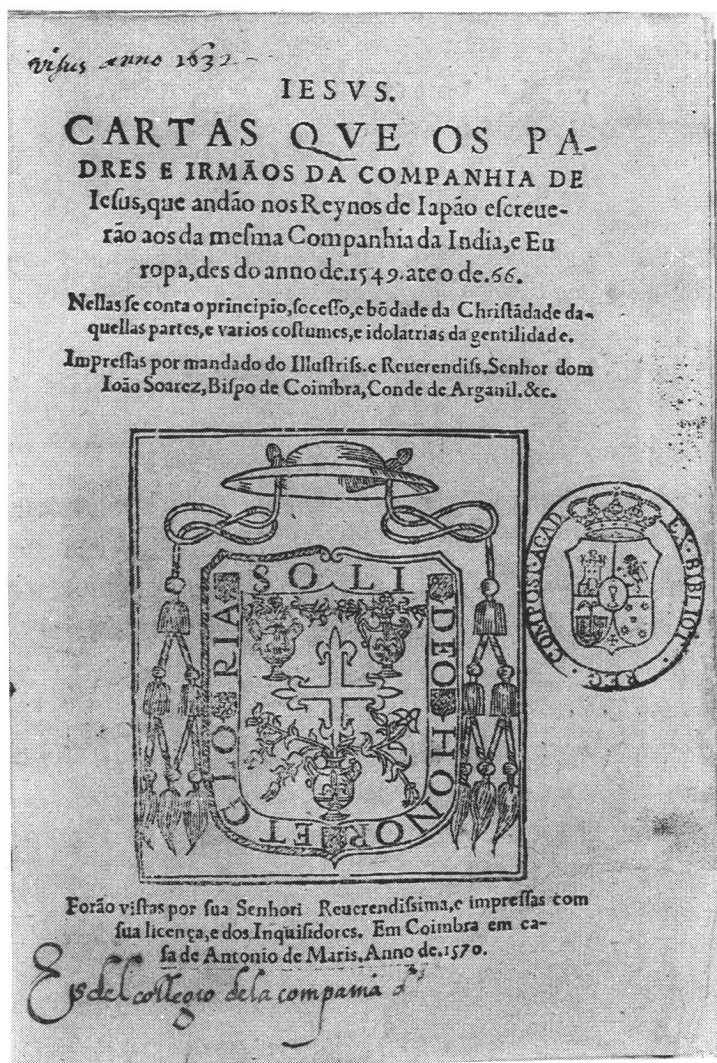 visus anno 1632
IESVS.
CARTAS QVE OS PA-
DRES E IRMÃOS DA COMPANHIA DE
Iesus,que andão nos Reynos de Iapão escreue-
rão aos da mesma Companhia da India,e Eu
ropa,des do anno de.1549.ate o de.66.
Nellas se conta o principio,socesso,e bõdade da Christãdade da-
quellas partes,e varios costumes,e idolatrias da gentilidade.
Impressas por mandado do Illustriss.e Reuerendiss.Senhor dom
Ioão Soarez,Bispo de Coimbra,Conde de Arganil.&c.
SOLI DEO HONOR ET GLORIA
REG · COMPOST · ACAD EX · BIBLIOT ·
Forão vistas por sua Senhori Reuerendissima,e impressas com
sua licença,e dos Inquisidores. Em Coimbra em ca-
sa de Antonio de Maris.Anno de.1570.
Es del collegio dela compania